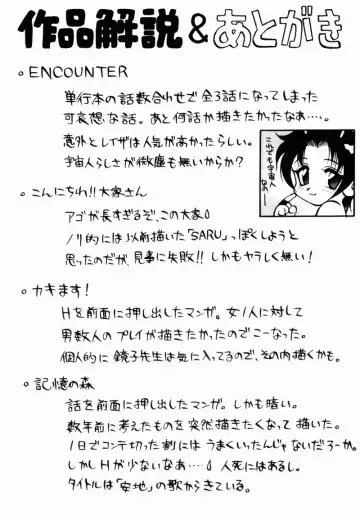 作品解説&あとがき
○ENCOUNTER
単行本の話数合わせで全3話になってしまった
可哀想な話。あと何話か描きたかったなあ…。
意外とレイザは人気があったらしい。
宇宙人らしさが微塵も無いからか?
これでも宇宙人
なの―
○こんにちわ!!大家さん
アゴが長すぎるぞ、この大家
ノリ的には以前描いた「SARU」っぽくしようと
思ったのだが、見事に失敗!!しかもやらしく無い!
○カキます!
Hを前面に押し出したマンガ。女1人に対して
男数人のプレイが描きたかったのでこーなった。
個人的に鏡子先生は気に入ってるので、その内描くかも。
○記憶の森
話を前面に押し出したマンガ。しかも暗い。
数年前に考えたものを突然描きたくなって描いた。
1日でコンテ切った割にはうまくいったんじゃないだろーか。
しかしHが少ないなあ…人死にはあるし。
タイトルは「安地」の歌からきている。